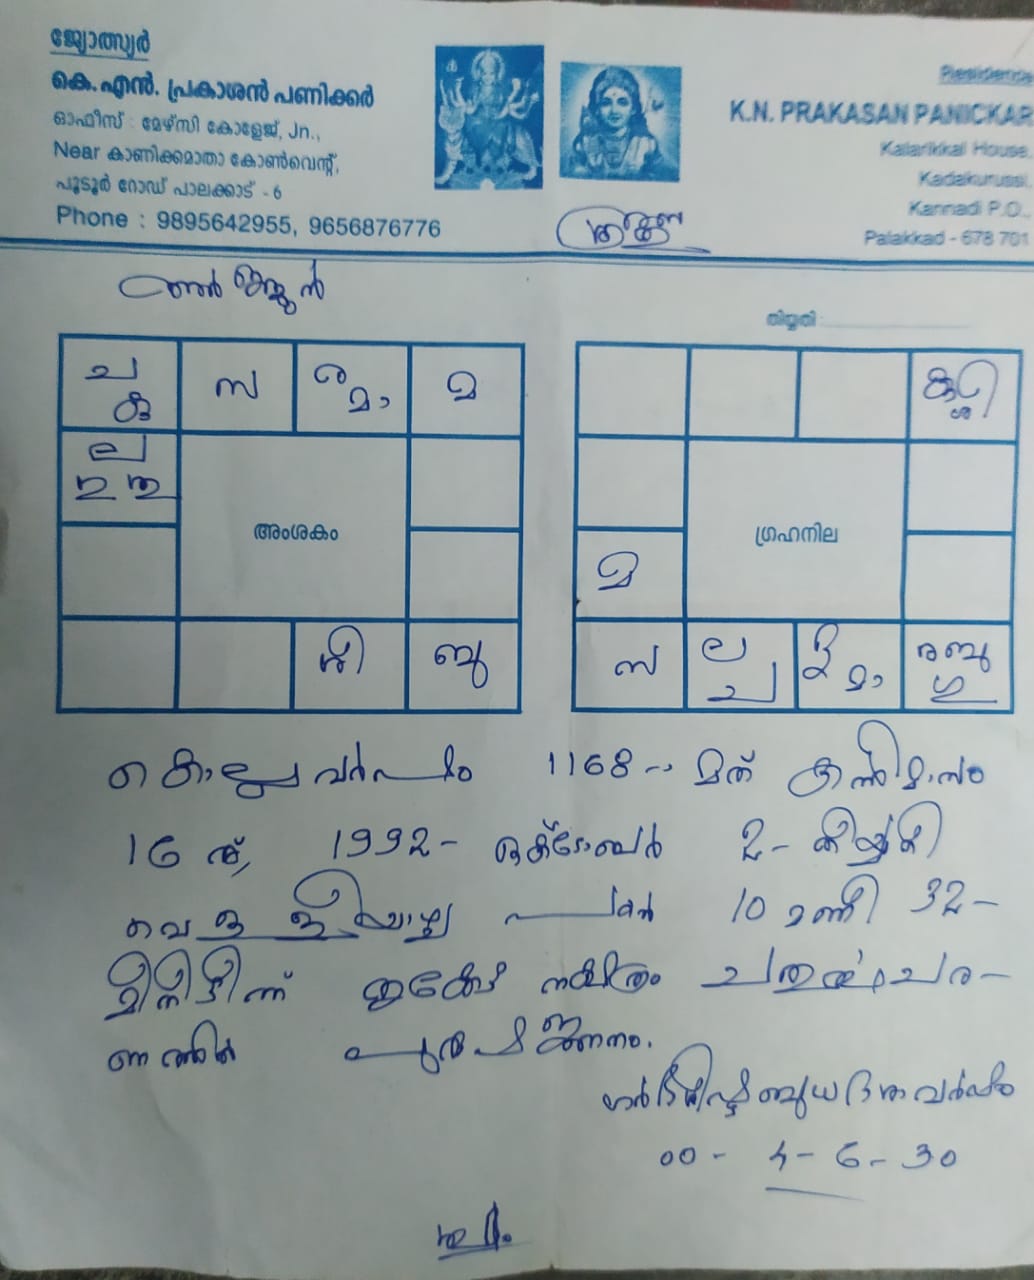 ജ്യോത്സ്യർ
കെ.എൻ. പ്രകാശൻ പണിക്കർ
ഓഫീസ് : മേഴ്സി കോളേജ്, Jn.,
Near കാണിക്കമാതാ കോൺവെന്റ്,
പൂടൂർ റോഡ് പാലക്കാട് - 6
Phone : 9895642955, 9656876776
Residence
K.N. PRAKASAN PANICKAR
Kalarikkal House,
Kadakurussi,
Kannadi P.O.
Palakkad - 678 701
തിയ്യതി
ച സ മ
ല
അംശകം
ബു
ഗ്രഹനില
മ
സ ല ബു
ച മാ
കൊല്ലവർഷം 1168 മത് കന്നിമാസം
16 ന്, 1992- ഒക്ടോബർ 2- തിയ്യതി
വെള്ളിയാഴ്ച പകൽ 10 മണി 32-
മിനിട്ടിന്ന്
പുരുഷജനനം.
ബുധദശാവർഷം
00 - 4 - 6 - 30